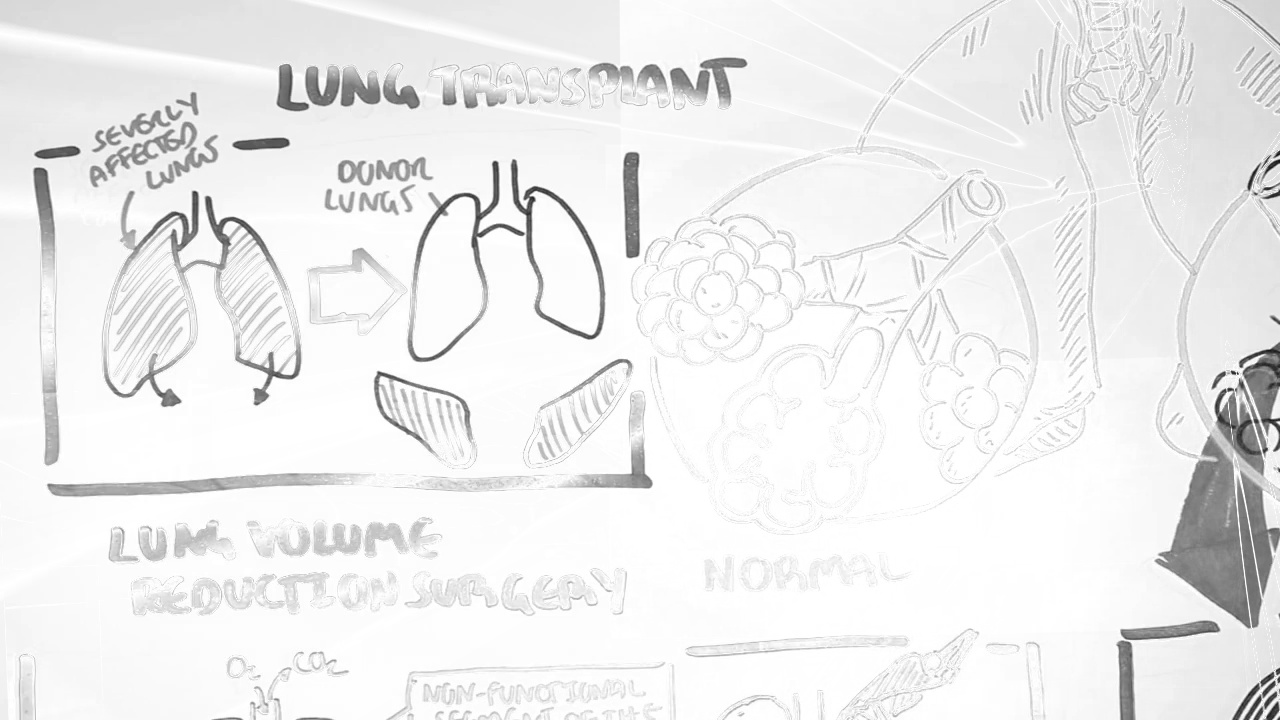 LUNG TRANSPLANT
SEVERLY
AFFECTED
LUNGS
DONOR
LUNGS
LUNG VOLUME
REDUCTION SURGERY
NORMAL
O₂
CO₂
NON-FUNCTIONAL
SEGMENT OF THE